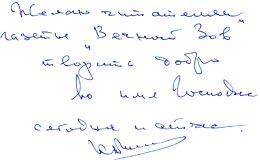 Желаю читателям
газеты "Вечный Зов"
творить добро
во имя Господа
сегодня и